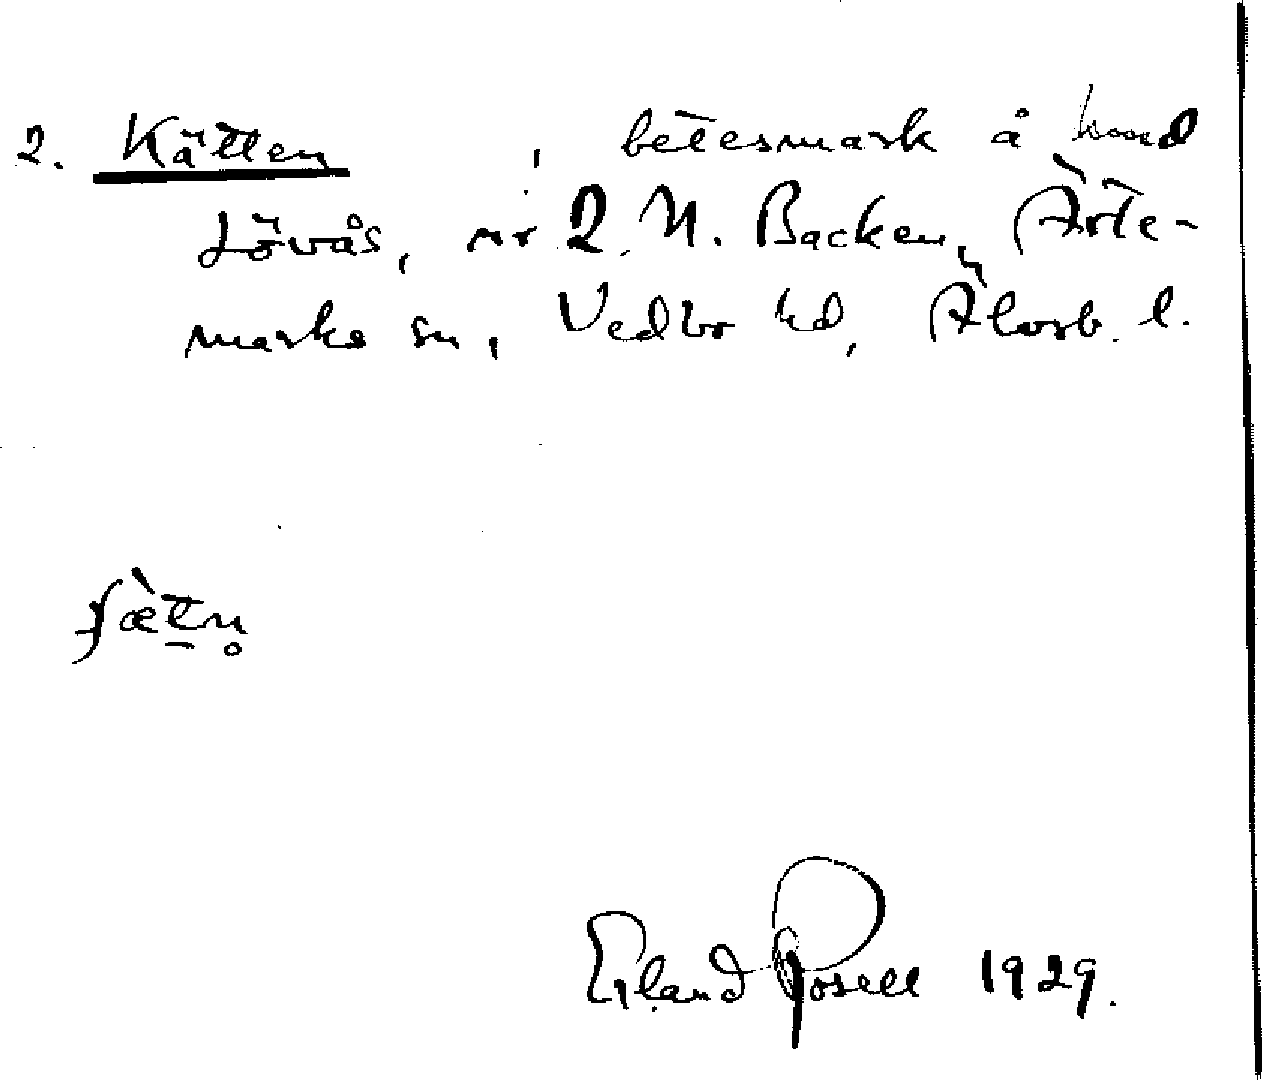 2. Kätten , betesmark å hmd
Lövås, nr 2, N. Backen, Ärte-
marks sn, Vedbo hd, Älvsb. l.
ʃæ̀tn̥
Erland Rosell 1929.